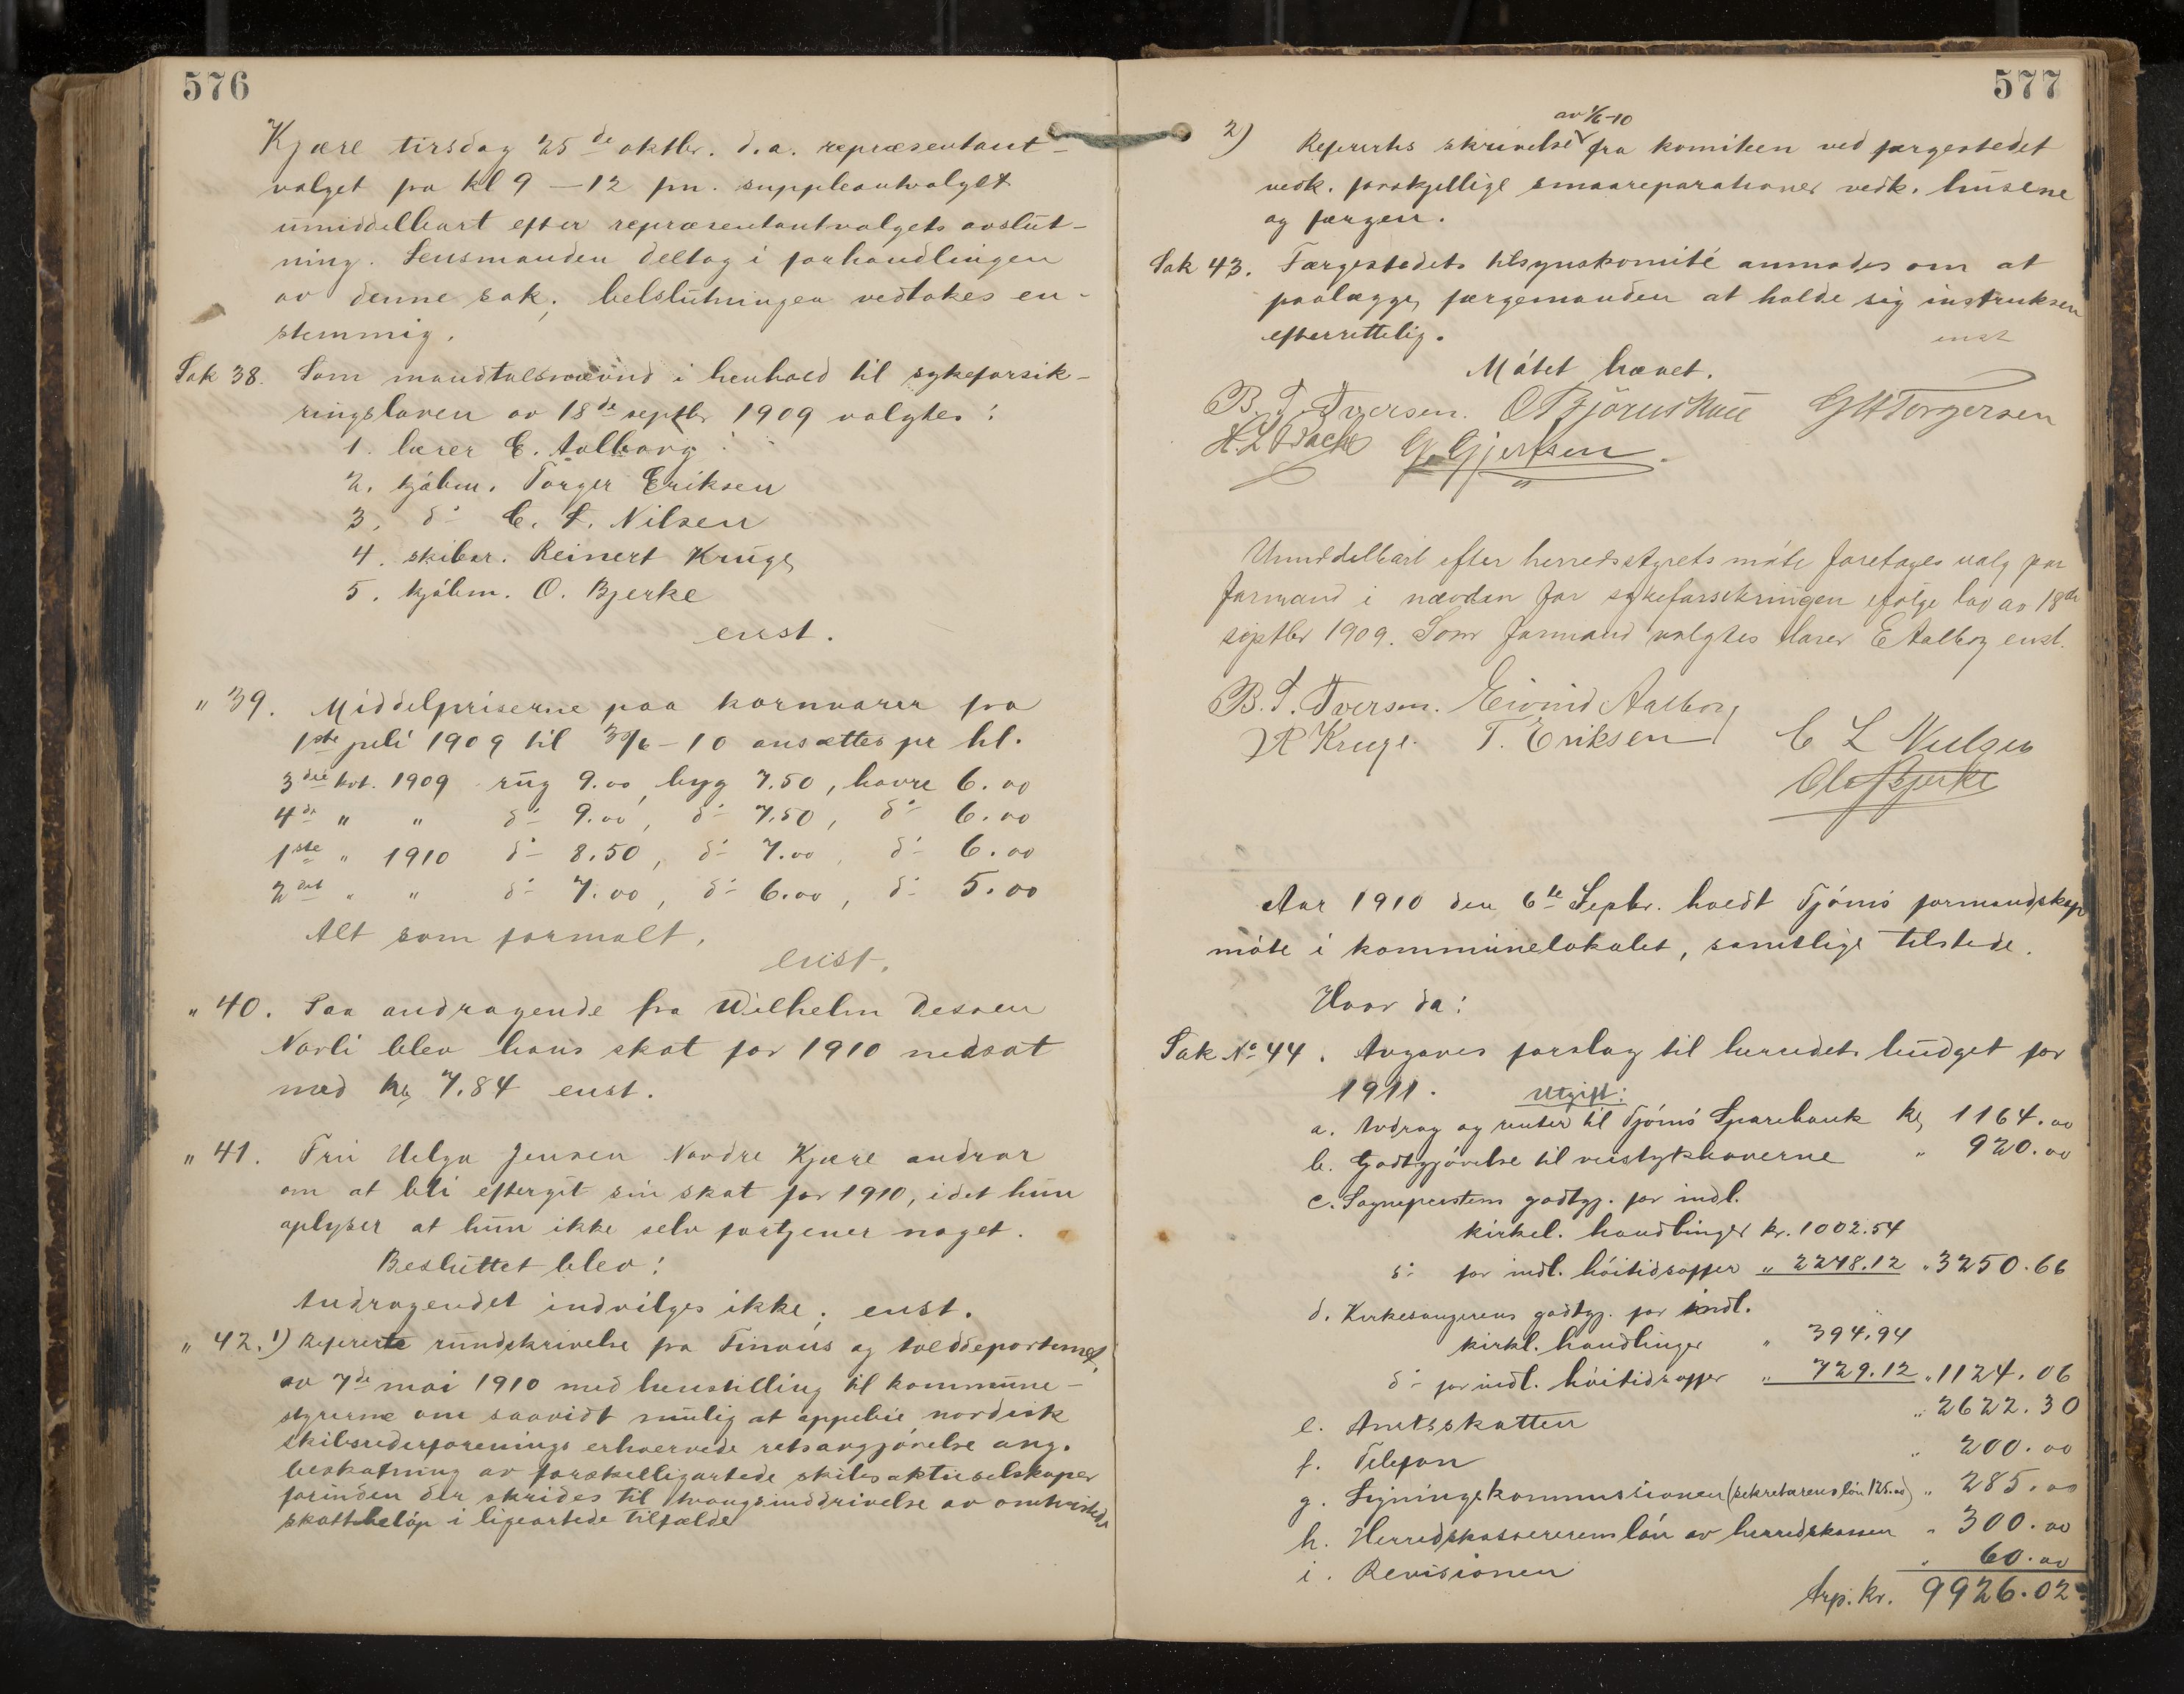 576
Kjære tirsdag 25de oktbr. d.a. repræsentant-
valget fra kl 9 – 12 fm. suppleantvalget
umiddelbart efter repræsentantvalgets avslut-
ning. Lensmanden deltog i forhandlingen
av denne sak; beslutningen vedtokes en-
stemmig.
Sak 38. Som mandtalsmænd i henhold til sykeforsik-
ringsloven av 18de septbr 1909 valgtes:
1. lærer E. Aalborg
2. kjøbm. Torger Eriksen
3. do C. L. Nilsen
4. skibsr. Reinert Kruge
5. kjøbm. O. Bjerke
enst.
" 39. Middelpriserne paa kornvarer fra
1ste juli 1909 til 30/6 – 10 ansættes pr hl.
3die kvt. 1909 rug 9.00, byg 7.50, havre 6.00
4de " " do 9.00, do 7.50, do 6.00
1ste " 1910 do 8.50, do 7.00, do 6.00
2det " " do 7.00, do 6.00, do 5.00
Alt som formalt.
enst.
" 40. Paa andragende fra Wilhelm Dessen
Narli blev hans skat for 1910 nedsat
med kr 7.84 enst.
" 41. Fru Helga Jensen Nordre Kjære andrar
om at bli eftergit sin skat for 1910, idet hun
oplyser at hun ikke selv fortjener noget.
Besluttet blev:
Andragendet indvilges ikke; enst.
" 42. 1) Refererte rundskrivelse fra Finans og tolddepartemet
av 7de mai 1910 med henstilling til kommune-
styrerne om saavidt mulig at appebie nordisk
skibsrederforenings erhvervede retsavgjørelse ang.
beskatning av forskelligartede skibsaktieselskaper
forinden der skrides til tvangsinddrivelse av omtvistede
skattbeløp i ligeartede tilfælde
577
av 1/6-10
2) Refererts skrivelse fra komiteen ved færgestedet
vedk. forskjellige smaareparationer vedk. husene
og færgen.
Sak 43. Færgestedets tilsynskomité anmodes om at
paalægge færgemanden at holde sig instruksen
efterrettelig.
enst
Møtet hævet.
B. T. Iversen. O Bjørnskau G H Torgersen
H. L. Bache G. Gjertsen
Umiddelbart efter herredsstyrets møte foretages valg paa
formand i nævnden for sykeforsikringen ifølge lov av 18de
septbr 1909. Som formand valgtes lærer E Aalborg enst.
B. T. Iversen. Eivind Aalborg
R Kruge. T. Eriksen C L Nielsen
Ole Bjerke
Aar 1910 den 6te Septbr. holdt Tjømø formandskap
møte i kommunelokalet, samtlige tilstede.
Hvor da:
Sak No 44. Avgaves forslag til herredets budget for
1911. Utgift:
a. Avdrag og renter til Tjømø Sparebank kr 1164.00
b. Godtgjørelse til veistykhaverne " 920.00
c. Sogneprestens godtgj. for indl.
kirkel. handlinger kr. 1002.54
do for indl. høitidsoffer " 2248.12 " 3250.66
d. Kirkesangerens godtgj. for indl.
kirkl. handlinger " 394.94
do for indl. høitidsoffer " 729.12 " 1124.06
e. Amtsskatten " 2622.30
f. Telefon " 200.00
g. Ligningskommissionen (sekretærens løn 125.00) " 285.00
h. Herredskassererens løn av herredskassen " 300.00
i. Revisionen " 60.00
Trp. kr. 9926.02